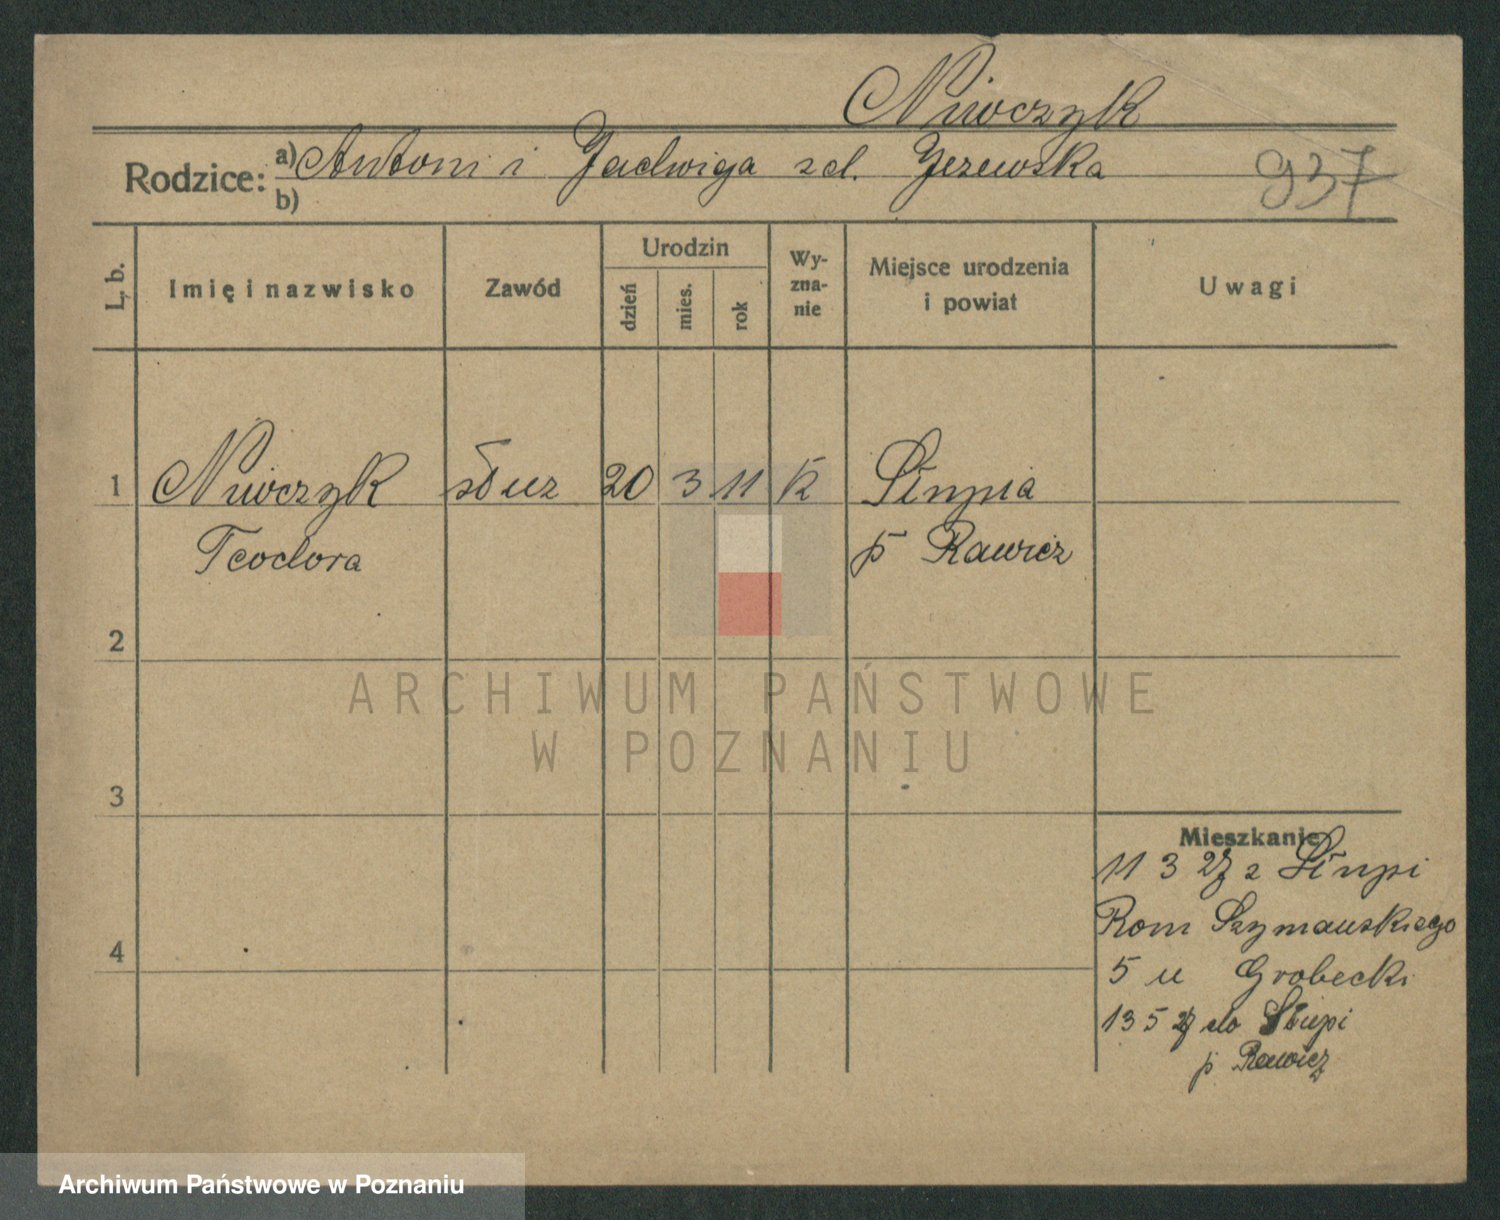 Niwczyk
Rodzice: a) Antoni i Jadwiga zd. Jezewska
b)
937
L. b.
Imię i nazwisko
Zawód
Urodzin
dzień
mies.
rok
Wy-
zna-
nie
Miejsce urodzenia
i powiat
Uwagi
1 Niwczyk służ 20 3 11 k Słupia
Teodora p Rawicz
2
ARCHIWUM PAŃSTWOWE
W POZNANIU
3
Mieszkanie
11 3 27 z Słupi
Rom Szymańskiego
4
5 u Grobecki
13 5 27 do Słupi
p Rawicz
Archiwum Państwowe w Poznaniu